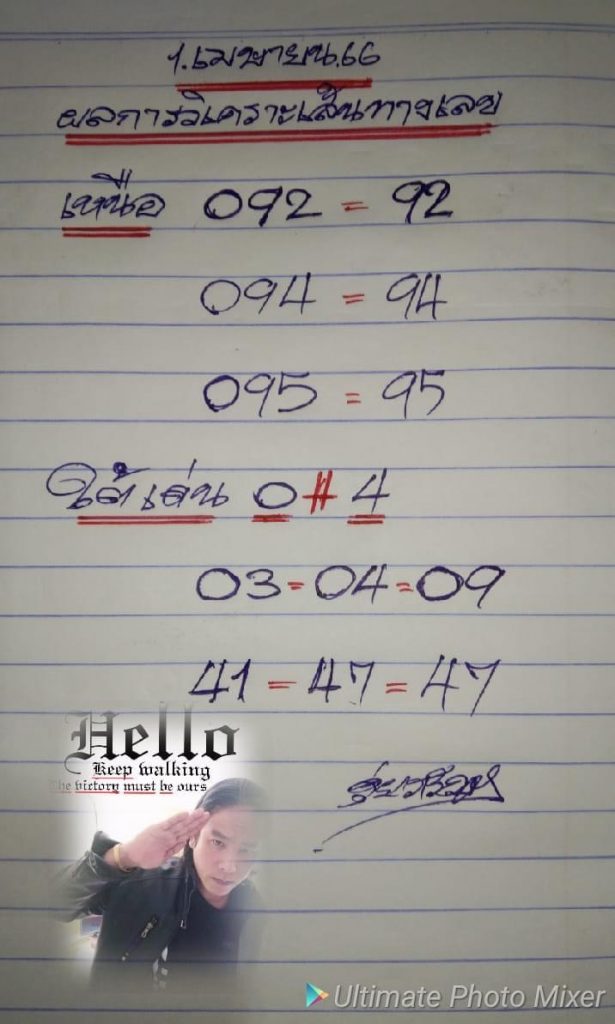 1.เมษายน.66
ผลการวิเคราะเส้นทางเลข
เหนือ 092 = 92
094 = 94
095 = 95
ใต้เด่น 0 # 4
03 = 04 = 09
41 - 47 = 47
Hello
Keep walking
The victory must be ours
Ultimate Photo Mixer